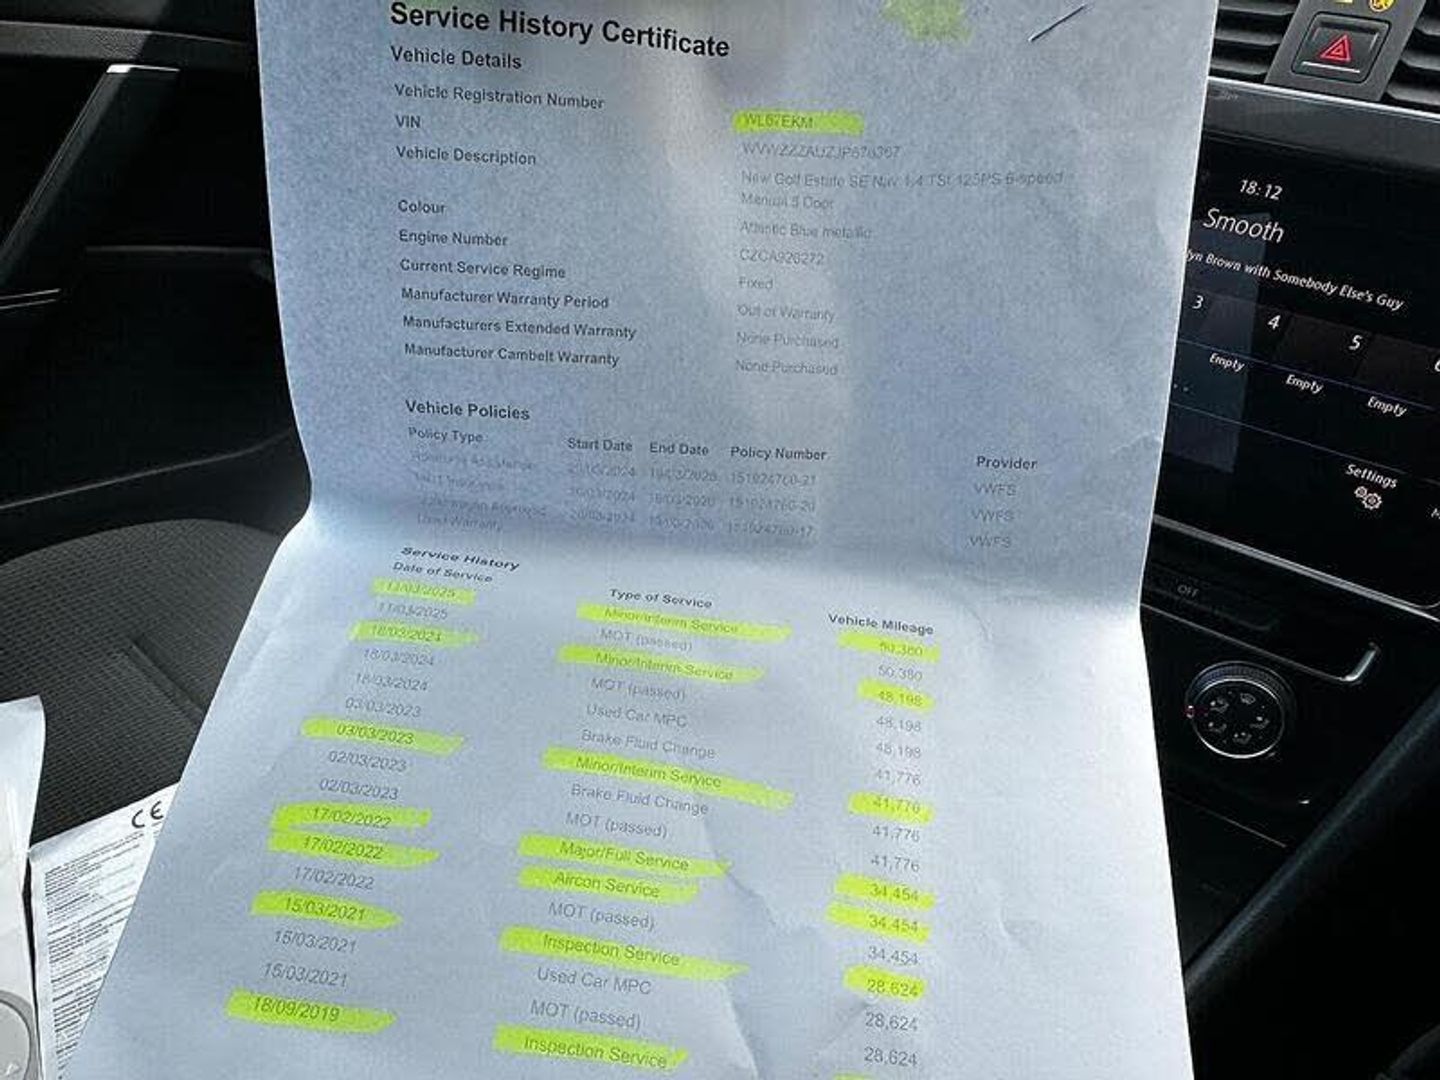 Service History Certificate
Vehicle Details
Vehicle Registration Number WL67EKM
VIN
Vehicle Description New Golf Estate SE Nav 1.4 TSI 125PS 6-speed
Manual 5 Door
Colour Atlantic Blue metallic
Engine Number CZCA926272
Current Service Regime Fixed
Manufacturer Warranty Period Out of Warranty
Manufacturers Extended Warranty None Purchased
Manufacturer Cambelt Warranty None Purchased
Vehicle Policies
Policy Type Start Date End Date Policy Number Provider
Roadside Assistance 151024760-21 VWFS
MOT Insurance 151024760-20 VWFS
Volkswagen Approved 151024760-17 VWFS
Used Warranty
Service History
Date of Service Type of Service Vehicle Mileage
11/03/2025 Minor/Interim Service 50,380
11/03/2025 MOT (passed) 50,380
18/03/2024 Minor/Interim Service 48,198
18/03/2024 MOT (passed) 48,198
18/03/2024 Used Car MPC 48,198
03/03/2023 Brake Fluid Change 41,776
03/03/2023 Minor/Interim Service 41,776
02/03/2023 Brake Fluid Change 41,776
02/03/2023 MOT (passed) 41,776
17/02/2022 Major/Full Service 34,454
17/02/2022 Aircon Service 34,454
17/02/2022 MOT (passed) 34,454
15/03/2021 Inspection Service 28,624
15/03/2021 Used Car MPC 28,624
15/03/2021 MOT (passed) 28,624
18/09/2019 Inspection Service
CE
18:12
Smooth
lyn Brown with Somebody Else's Guy
3
4
5
Empty
Empty
Empty
Settings
OFF